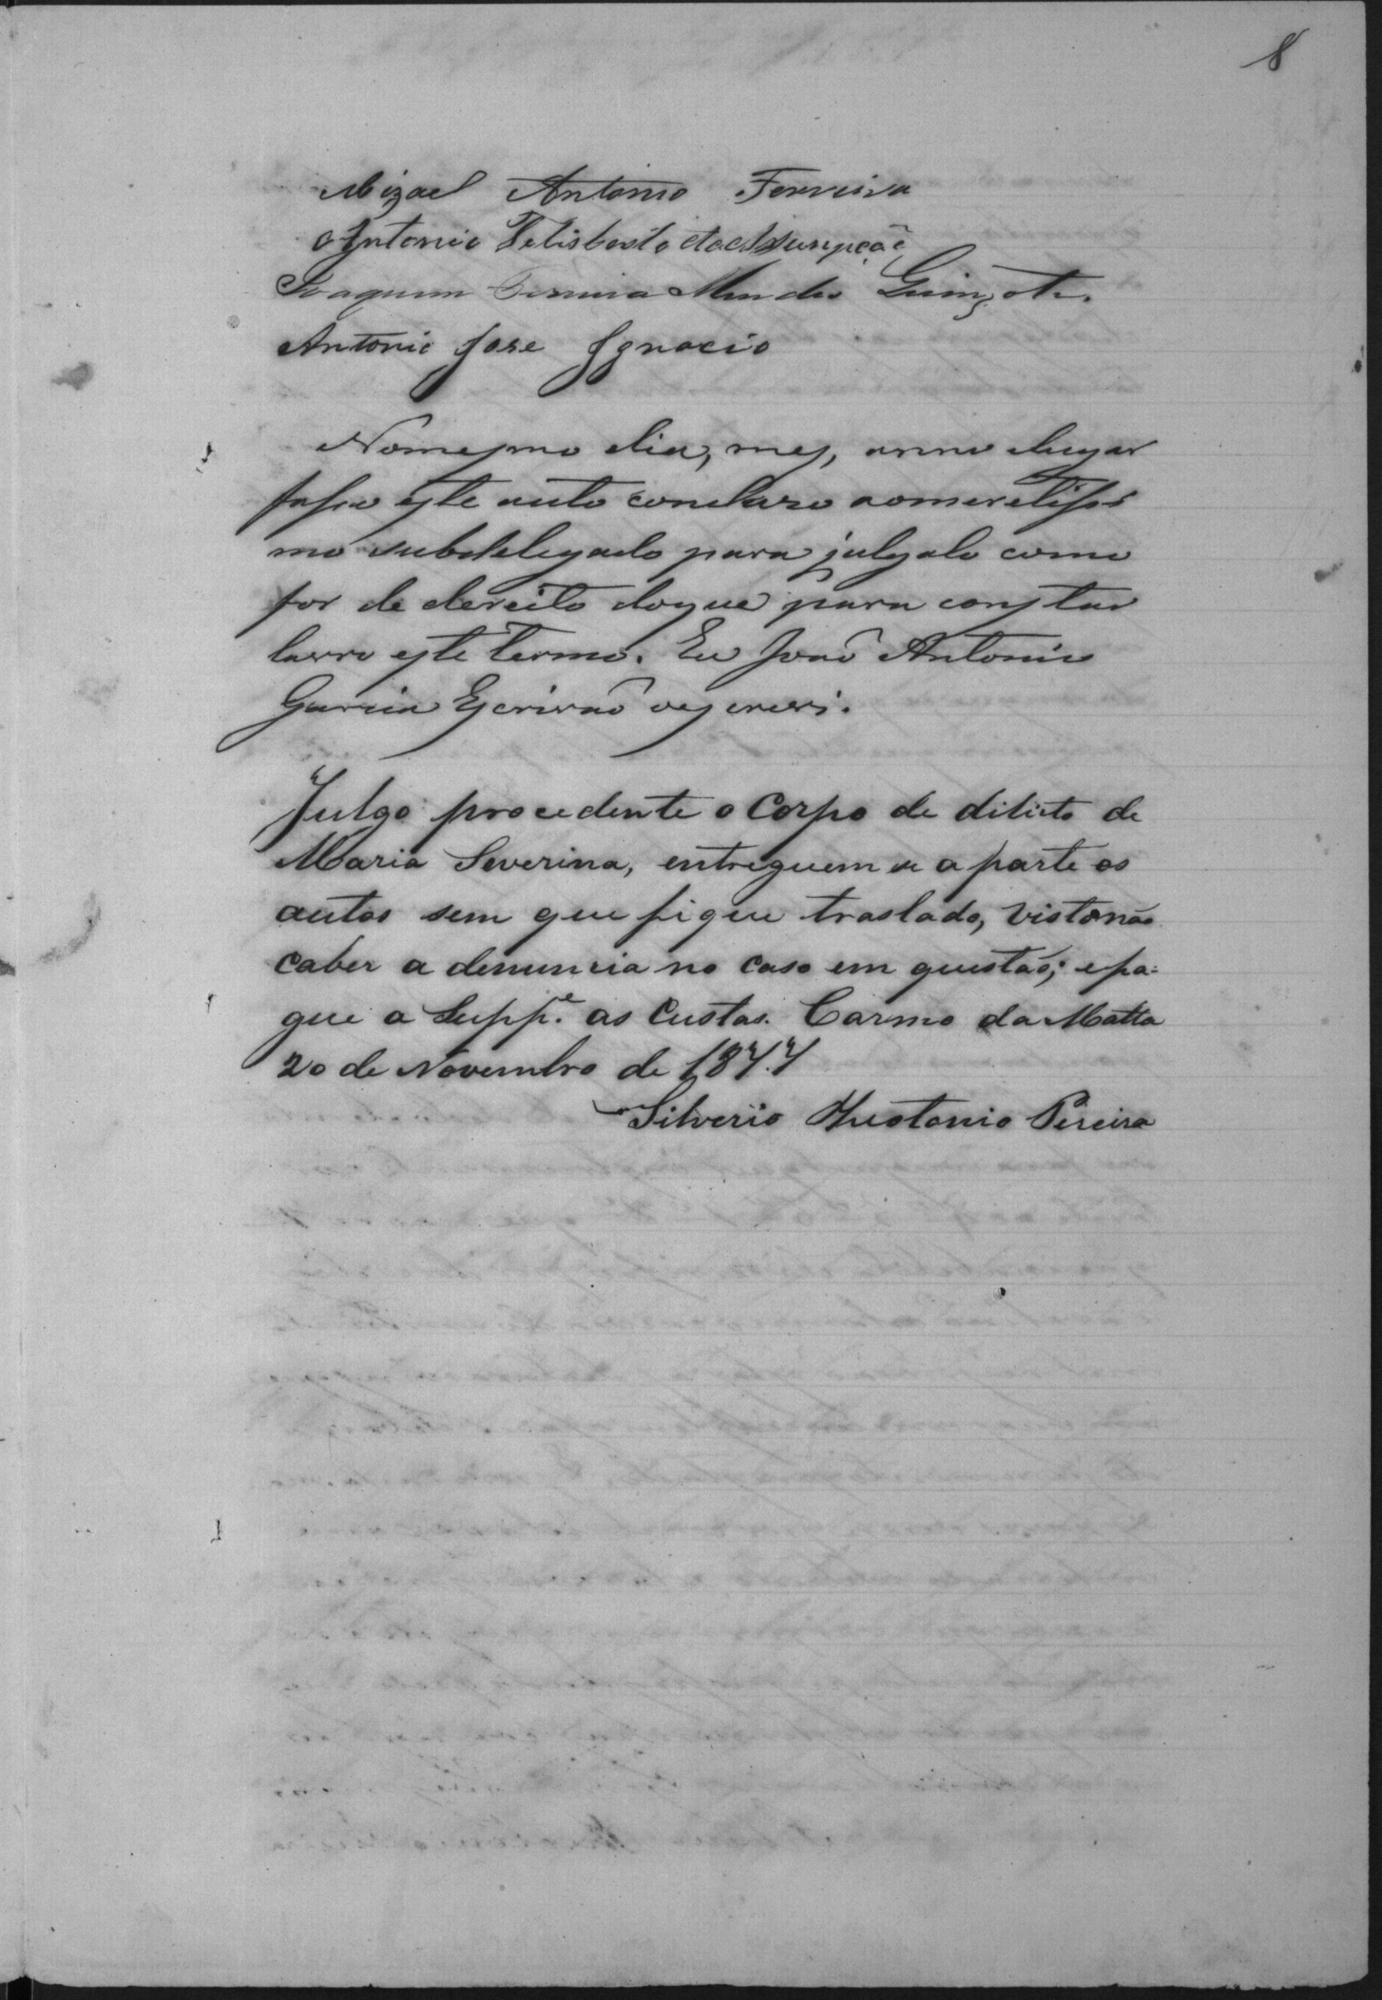 8
Mizael Antonio Ferreira
Antonio Felisberto da Assumpção
Joaquim Ferreira Mendes
Antonio Jose Ignacio
Nomesmo dia, mes, anno elugar
faço este auto concluzo aomeretissi
mo subdelegado para julgalo como
for de dereito doque para constar
lavro este termo. Eu João Antonio
Garcia Escrivão oescrevi.
Julgo procedente o Corpo de dilicto de
Maria Severina, entreguem se a parte os
autos sem que fique traslado, visto não
caber a denuncia no caso em questão; epa-
gue a Suppe. as Custas. Carmo da Matta
20 de Novembro de 1877
Silverio Theotonio Pereira